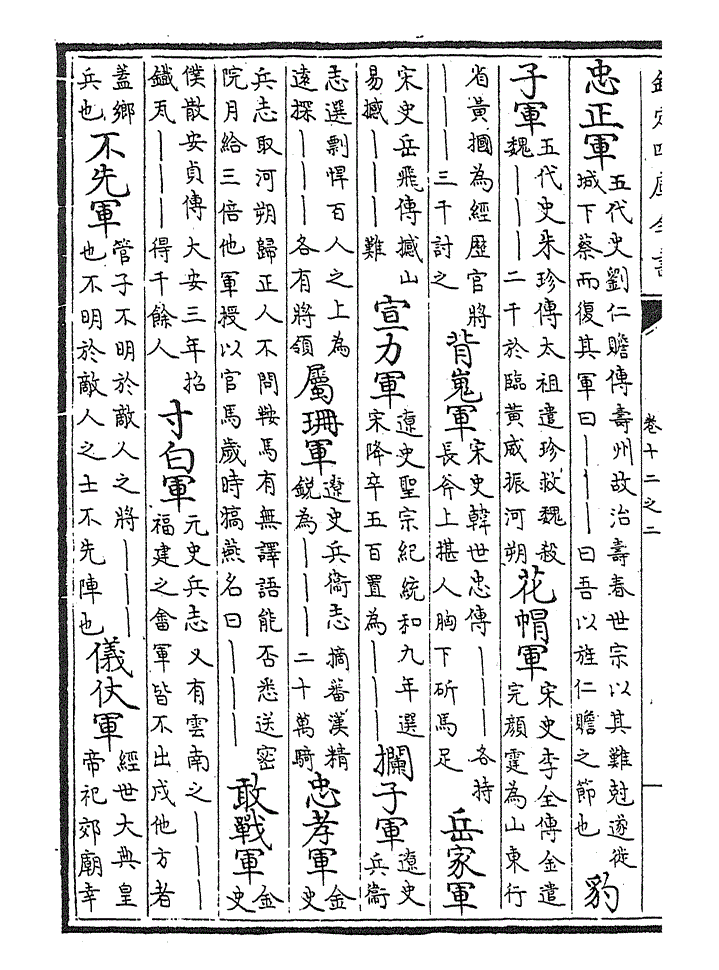 欽定四庫全書
卷十二之二
忠正軍
五代史劉仁贍傳壽州故治壽春世宗以其難尅遂徙
城下蔡而復其軍曰———曰吾以旌仁贍之節也
豹
子軍
五代史朱珍傳太祖遣珍救魏殺
魏———二千於臨黃威振河朔
花帽軍
宋史李全傳金遣
完顏霆為山東行
省黃摑為經歷官將
———三千討之
背嵬軍
宋史韓世忠傳———各持
長斧上揕人胸下斫馬足
岳家軍
宋史岳飛傳撼山
易撼———難
宣力軍
遼史聖宗紀統和九年選
宋降卒五百置為———
攔子軍
遼史
兵衞
志選剽悍百人之上為
遠探———各有將領
屬珊軍
遼史兵衞志摘蕃漢精
銳為———二十萬騎
忠孝軍
金
史
兵志取河朔歸正人不問鞍馬有無譯語能否悉送密
院月給三倍他軍授以官馬歲時犒燕名曰———
敢戰軍
金
史
僕散安貞傳大安三年招
鐵瓦———得千餘人
寸白軍
元史兵志又有雲南之———
福建之畬軍皆不出戍他方者
蓋鄉
兵也
不先軍
管子不明於敵人之將———
也不明於敵人之士不先陣也
儀仗軍
經世大典皇
帝祀郊廟幸